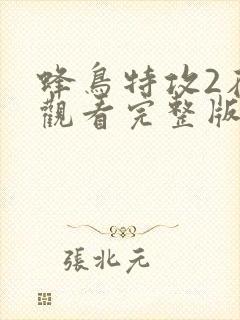 蜂鳥特攻2
觀看完整版
張北元